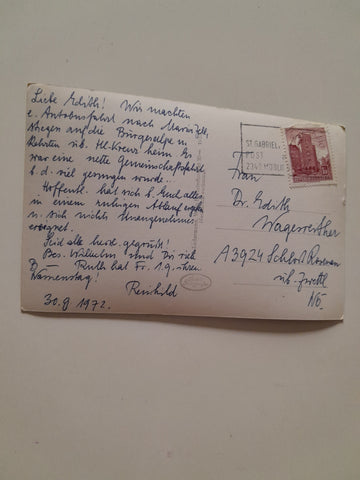 Liebe Edith! Wir machten
e. Autobusfahrt nach Mariazell,
stiegen auf die Bürgeralpe u.
kehrten üb. Hl. Kreuz heim. Es
war eine nette Gemeinschaftsfahrt
b. d. viel gesungen wurde.
Hoffentl. hat sich b. Euch alles
in einem ruhigen
u. sich nichts Unangenehmes
ereignet.
Seid alle herzl. gegrüßt!
Bes. Wilhelm und Du
Ruth hat Fr. 1.9. ihren
Namenstag!
Reinhild
30.8 1972.
ST. GABRIEL
POST
2340 MÖDLING
Frau
Dr. Edith
Wagesreither
A3924 Schloß Rosenau
üb. Zwettl
NÖ.